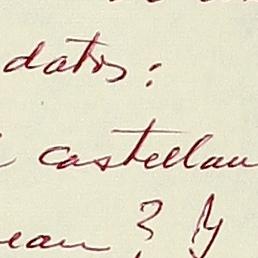 datos:
castellan
ean ? Y